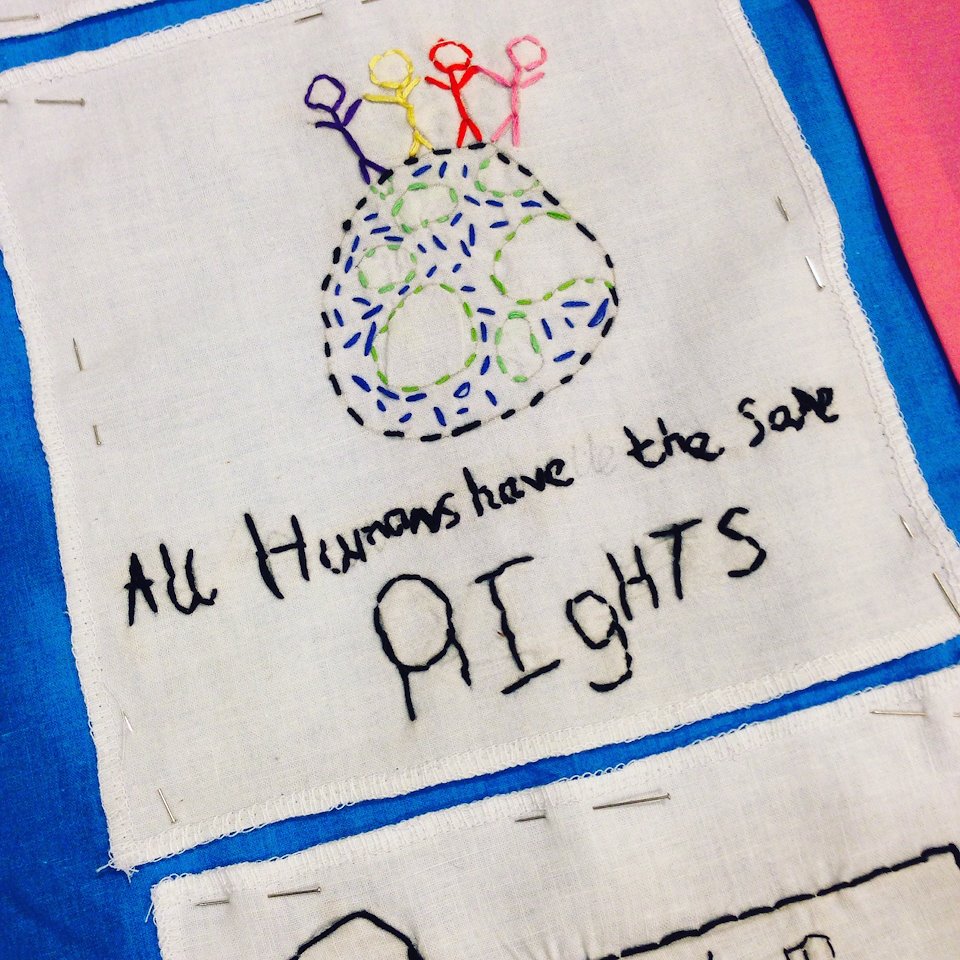 All Humans have the same
RIgHTS